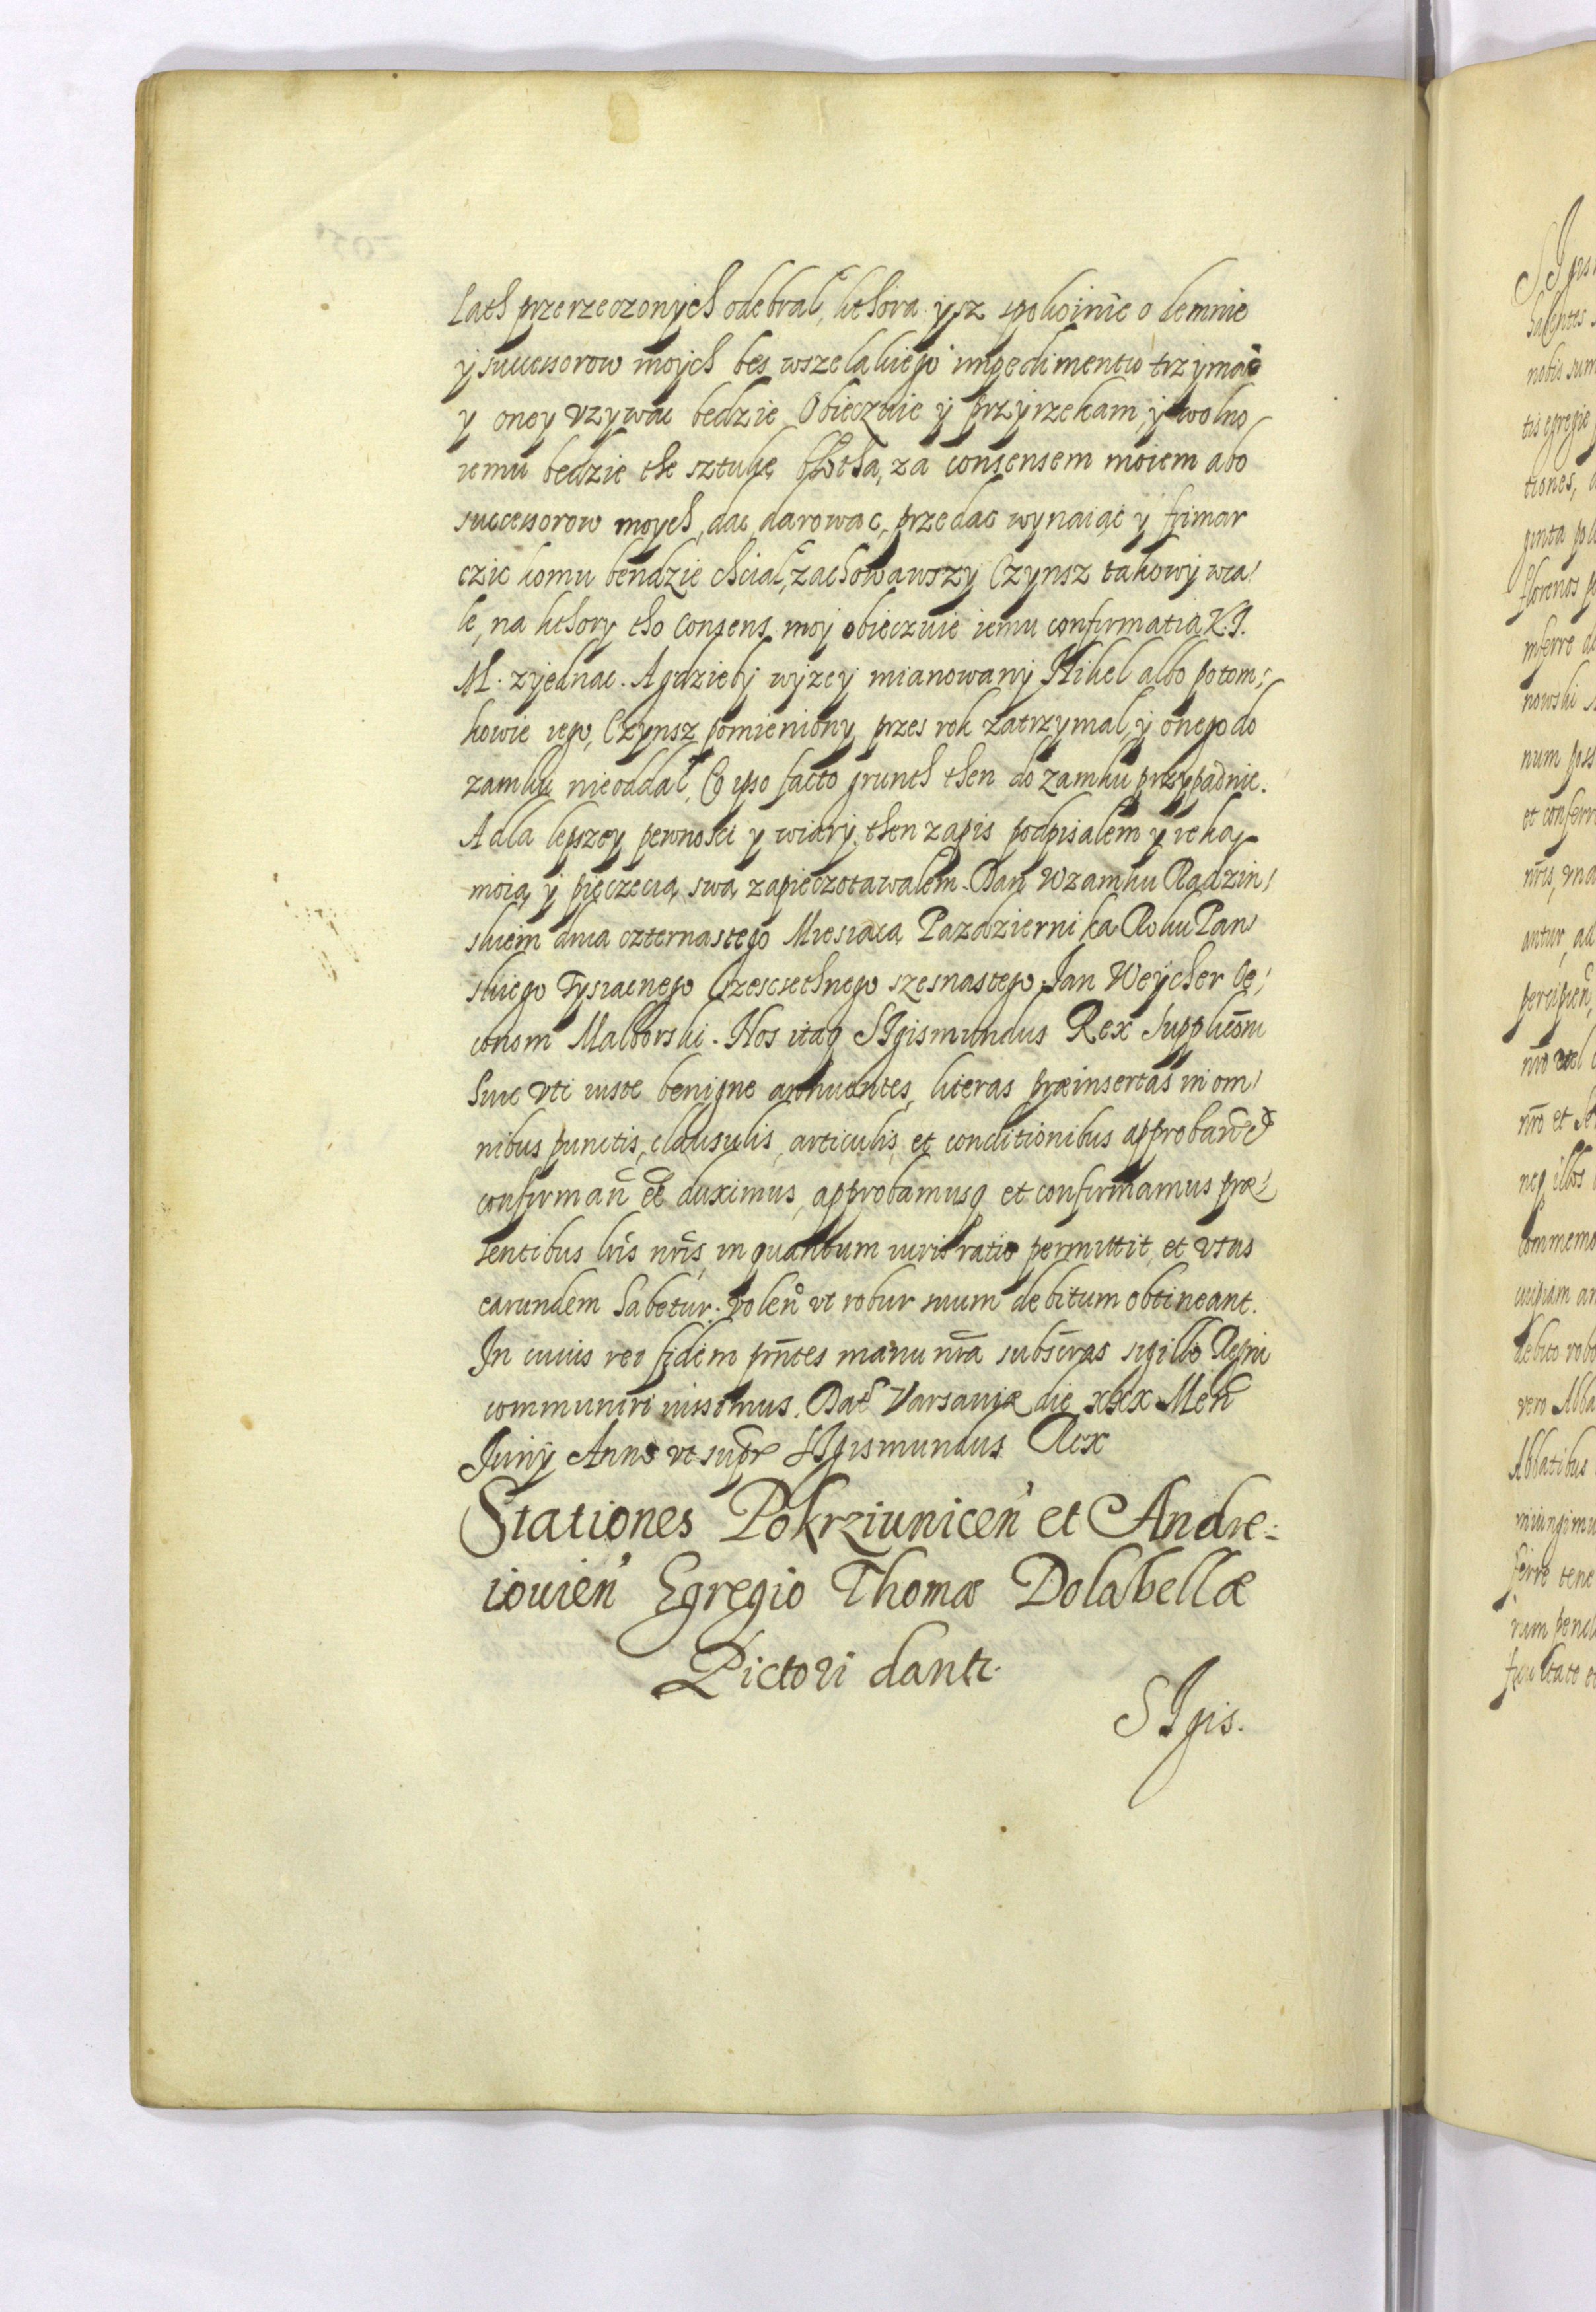 lath przerzeczonych odebral, kthora ysz spokoinie o demnie
y successorow moych bes wszelakiego impedimentu trzymac
y oney vzywac bedzie Obieczuie y przyrzekam, y wolno
iemu bedzie the sztuke błotha, za consensem moiem abo
successorow moych, dac, darowac, przedac wynaiąć y frimar
czic komu bendzie chcial, zachowawszy Czynsz takowy wca/
le, na kthory tho consens moy obieczuie iemu confirmatią K.J.
M. zyednac. A gdzieby wyzey mianowany Nikel albo potom;
kowie iego, Czynsz pomieniony przes rok zatrzymal, y onego do
zamku nieoddal, Eo ipso facto grunth then do zamku przypadnie.
A dla lepszey pewnosci y wiary, then zapis podpisalem y reką
moią, y pieczecią swą zapieczotawalem. Dan Wzamku Radzin/
skiem dnia czternastego Miesiaca Pazdziernika Roku Pan/
skiego Tysiacnego Szescsethnego szesnastego. Jan Weÿcher Oe/
conom Malborski. Nos itaq Sigismundus Rex Supplicõni
huic vti iuste benigne annuentes, literas præinsertas in om/
nibus punctis, clausulis, articulis, et conditionibus approband et
confirmañd eẽ duximus, approbamusq et confirmamus præ/
sentibus lrĩs nrĩs, in quantum iuris ratio permittit, et vsus
earundem habetur. volen vt robur suum debitum obtineant.
In cuius rei fidem prñtes manu nrã subscras sigillo Regni
communiri iussimus. Dat Varsaviæ die xxx Men
Junÿ Anno vt supr Sigismundus Rex
Stationes Pokrziunicen et Andre:
iouien Egregio Thomæ Dolabellæ
Pictori dantr.
SIgis.